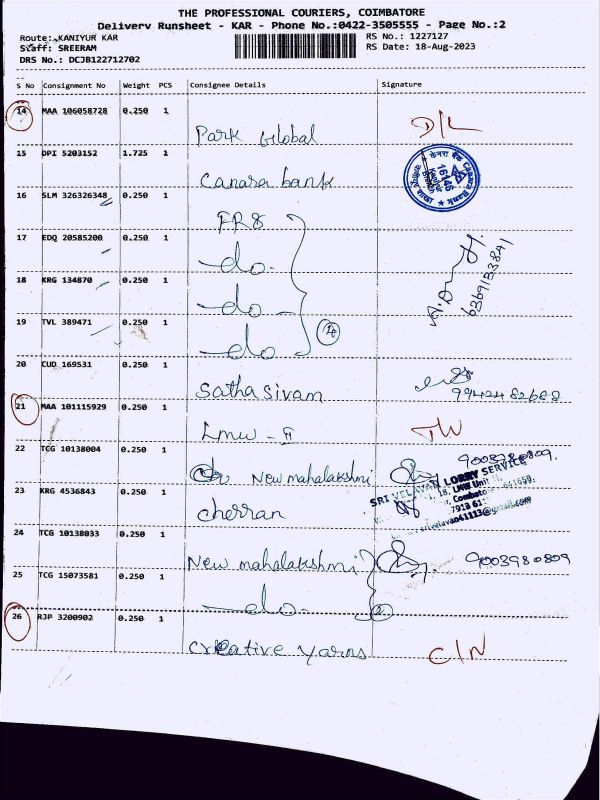 THE PROFESSIONAL COURIERS, COIMBATORE
Delivery Runsheet - KAR - Phone No.:0422-3505555 - Page No.:2
Route: KANIYUR KAR
RS No.: 1227127
Staff: SREERAM
RS Date: 18-Aug-2023
DRS No.: DCJB122712702
S No Consignment No Weight PCS Consignee Details Signature
14 MAA 106058728 0.250 1
Park Global D/L
15 DPI 5203152 1.725 1
Canara bank
16 SLM 326326348 0.250 1
FR8
17 EDQ 20585200 0.250 1
do.
18 KRG 134870 0.250 1
do
6369153841
19 TVL 389471 0.250 1
do
20 CUD 169531 0.250 1
Sathasivam
21 MAA 101115929 0.250 1
Lmw - II
22 TCG 10138004 0.250 1
New mahalakshmi
SRI VELAVAN LORRY SERVICE
23 KRG 4536843 0.250 1
cherran
24 TCG 10138033 0.250 1
New mahalakshmi 9003980809
25 TCG 15073581 0.250 1
do.
26 RJP 3200902 0.250 1
creative yarns C/N